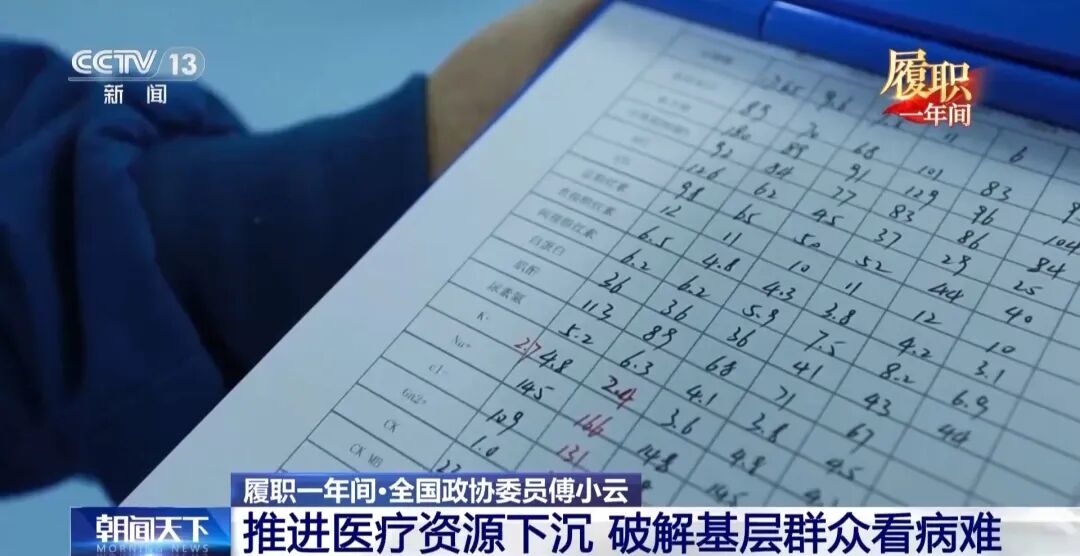 CCTV 13
新闻
履职
一年间
83 70 68 101 83
92 89 91 129 96 104
12.6 84 77 83 86 84
98 62 45 37 29 25
12 65 50 52 44 40
6.5 11 10 11 12 10
6.2 4.8 4.3 3.8 4.2 3.1
直接胆红素
间接胆红素
白蛋白 36 6.2 5.9 7.5 8.2 6.9
肌酐 113 36 36 41 43 44
尿素氮 5.2 89 68 71 67
K+ 2.7 4.8 6.3 4.1 3.8 4.5
Na+ 145 2.4 3.6 4.9
cl- 109 166 148
Ca2+ 1.0 131 145
CK 22
CK MB
履职一年间·全国政协委员傅小云
朝闻天下
MORNING NEWS
推进医疗资源下沉 破解基层群众看病难